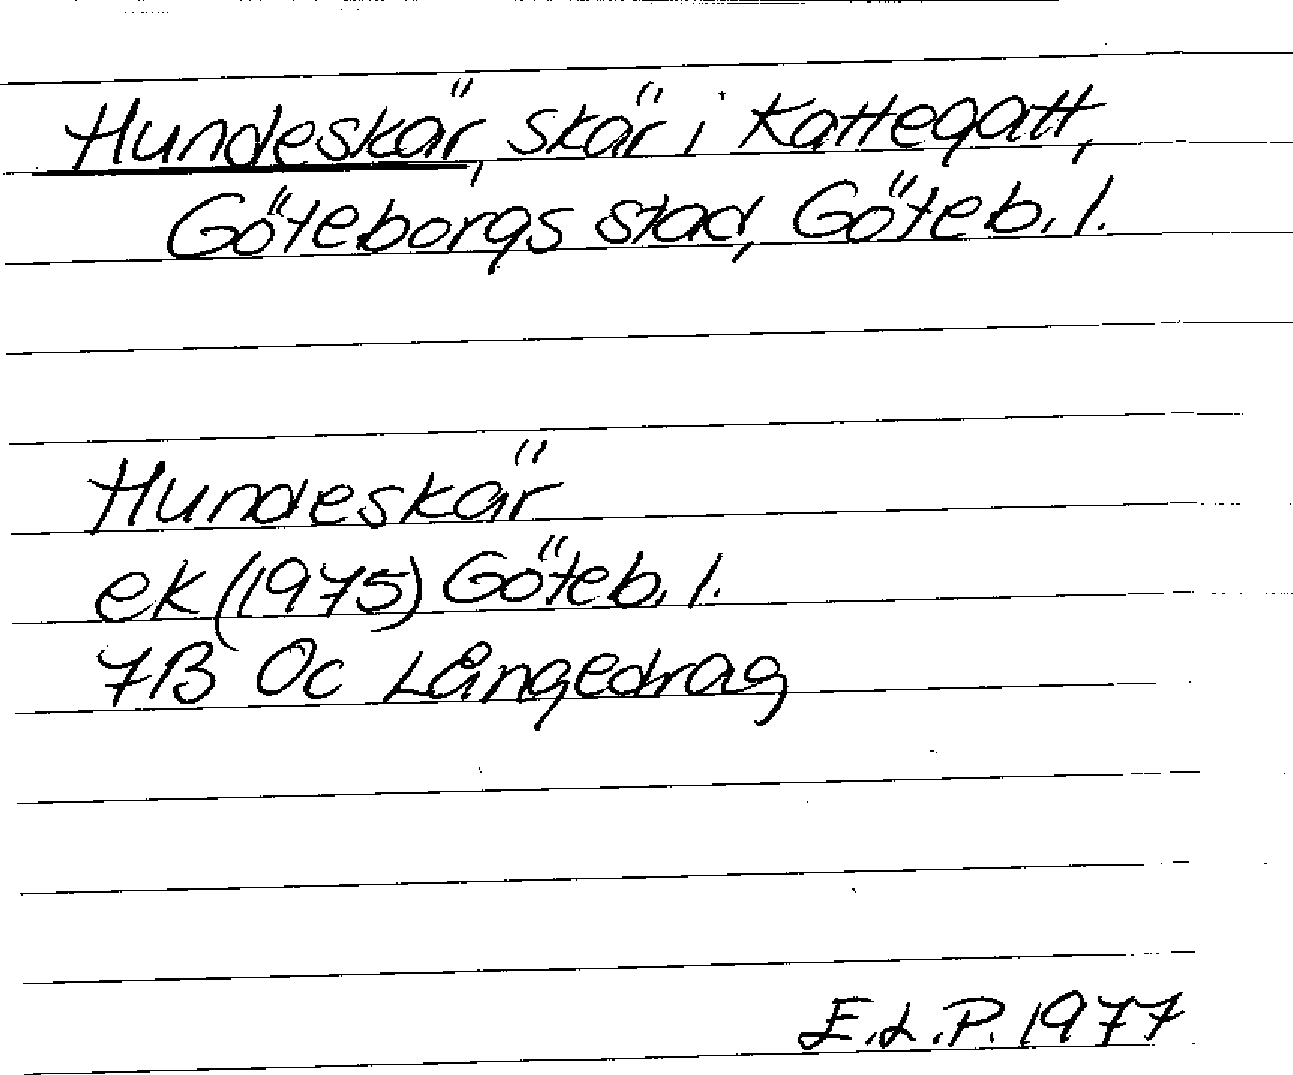 Hundeskär, skär i Kattegatt,
Göteborgs stad, Göteb. l.
Hundeskär
ek (1975) Göteb. l.
7B 0c Långedrag
E.L.P. 1977